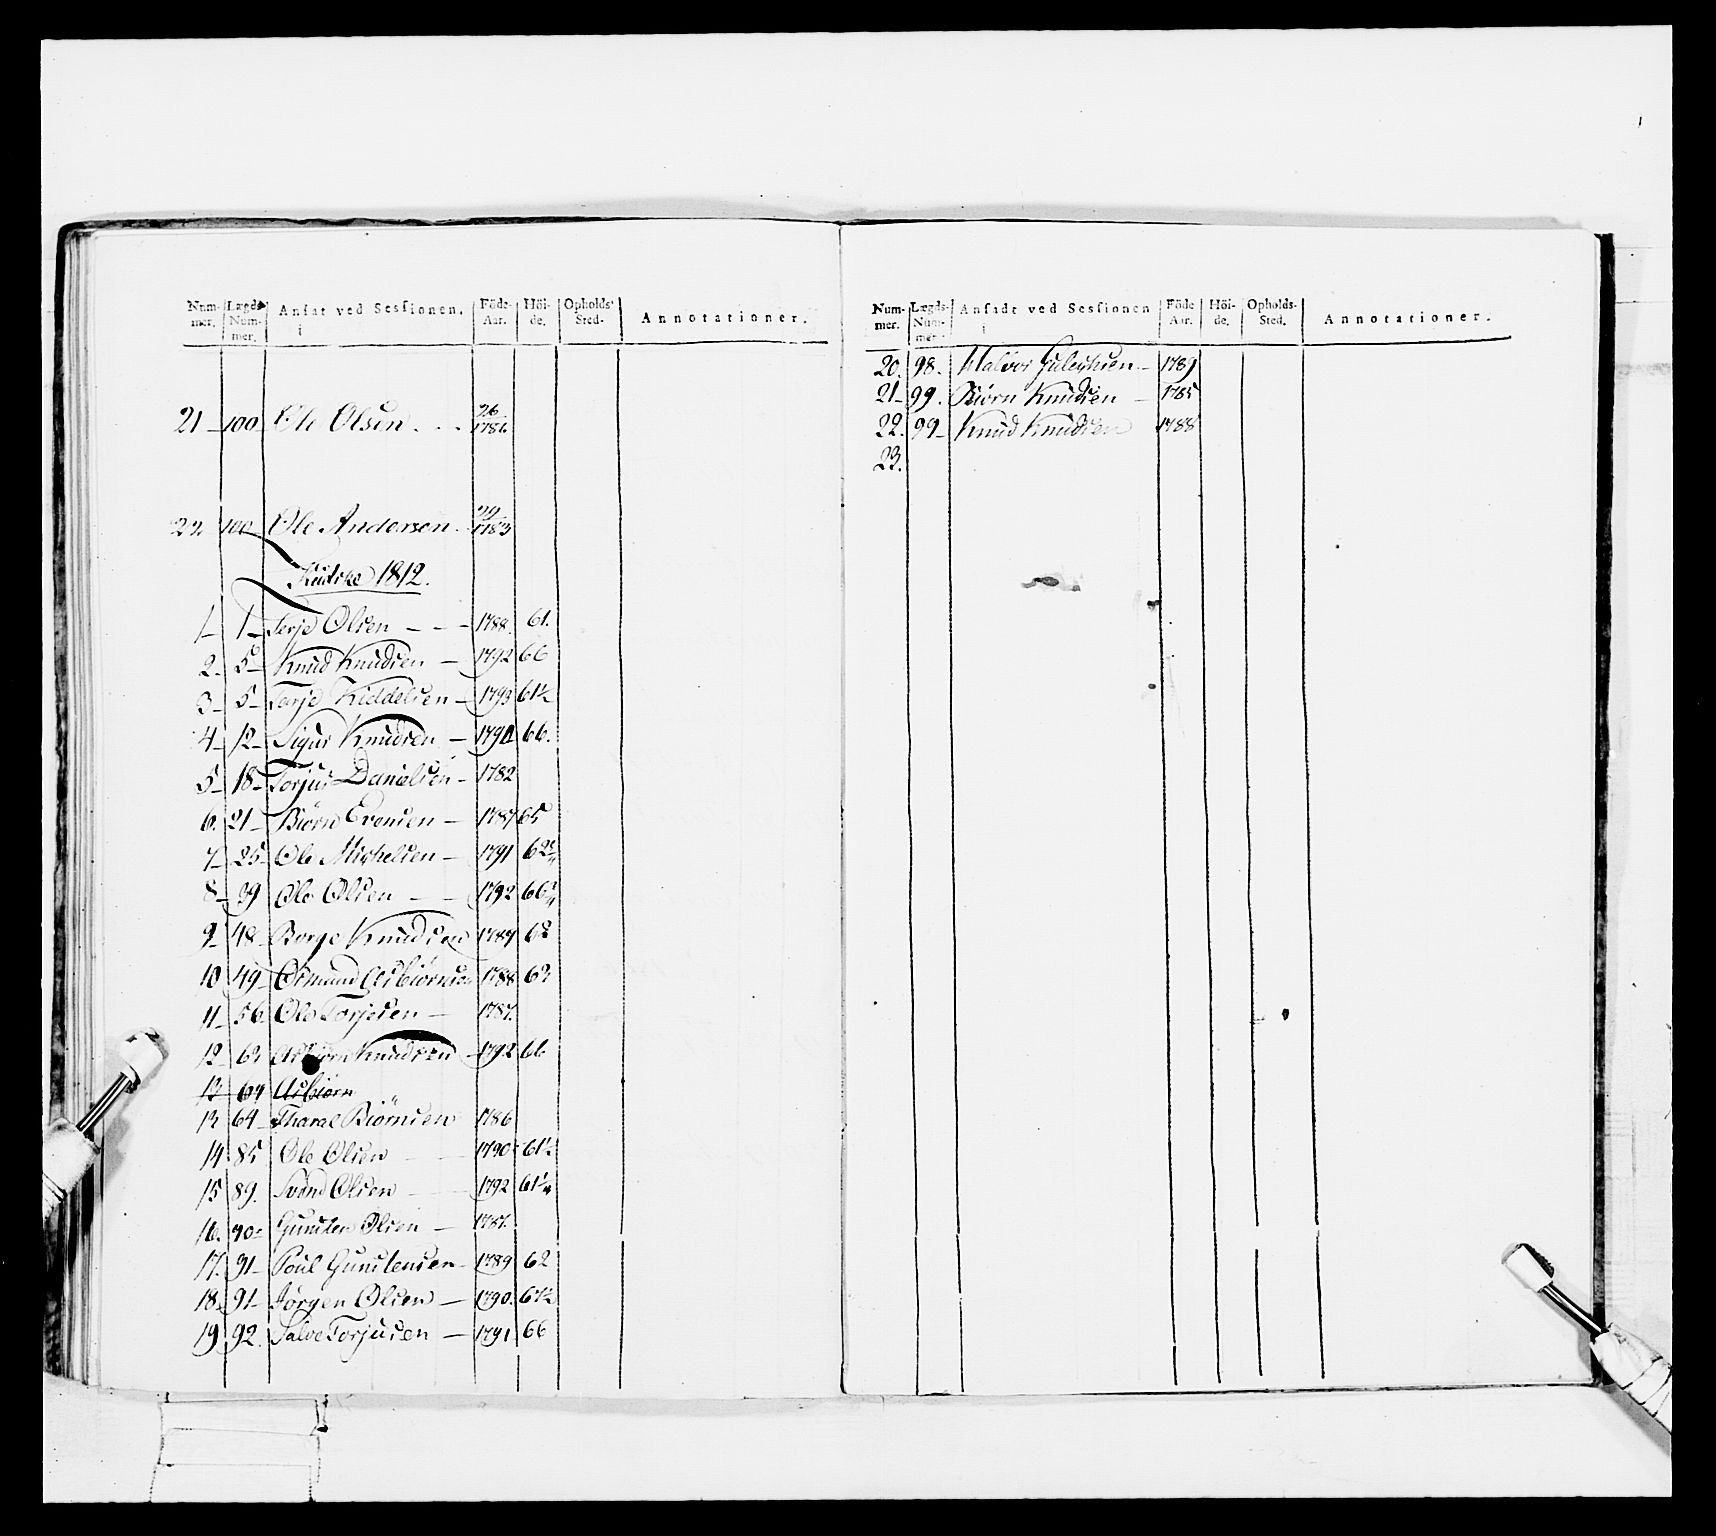 Num-mer. Lægds-Num-mer. Ansat ved Sessionen. i Föde-Aar. Höi-de. Opholds-Sted. Annotationer.
21 100 Ole Olsen 26/1786
22. 100 Ole Andersen 29/1783
1812.
1 1 Terje Olsen 1788. 61.
2. 5 Knud Knudsen 1792 66
3 5 Terje Kiddelsen 1793 61½
4 12 Sigur Knudsen 66.
5 18 Torjus Danielsen 1782
6. 21 Biörn Evensen 1787 65
7 25 Ole Michelsen 1791
8 39 Ole Olsen 1792
9 48 Børge Knudsen 62
10 49 Osmund Asbiörnsen 1788
11 56 Ole Torjesen 1787.
12 Asbiörn Knudsen 1792 66
13 64 Asbiörn
13 64 Tharal Biörnsen 1786
14 85 Ole Olsen 1790 61½
15 89. Svend Olsen 1792 61¼
16. 90 Gunsten Olsen 1787.
17. 91 Poul Gunstensen 1789 62
18. 91 Jörgen Olsen 1790.
19 92. Salve Torjusen 1791 66
Num-mer. Lægds-Num-mer. Ansadt ved Sessionen i Föde Aar. Höi-de. Opholds-Sted. Annotationer.
20. 98. Halvor 1789
21 99. Biörn Knudsen 1785
22. 99 Knud Knudsen 1788
23.